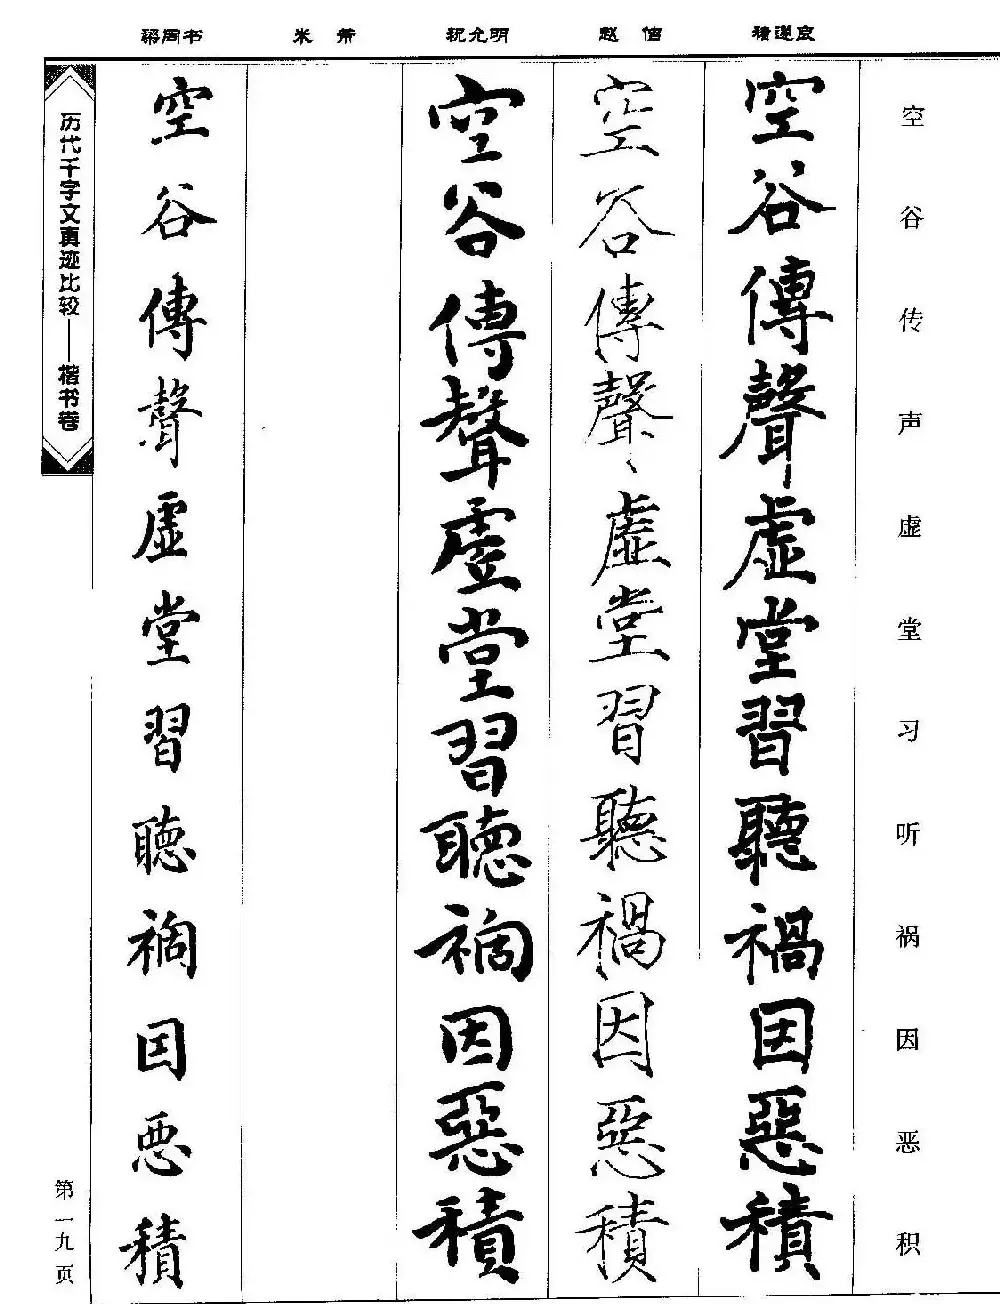 梁同书 米芾 祝允明 赵佶 褚遂良
空谷传声虚堂习听祸因恶积
空谷傳聲虛堂習聽禍因惡積
空谷傳聲虛堂習聽禍因惡積
空谷傳聲虛堂習聽禍因惡積
空谷傳聲虛堂習聽禍因惡積
历代千字文真迹比较——楷书卷
第一九页